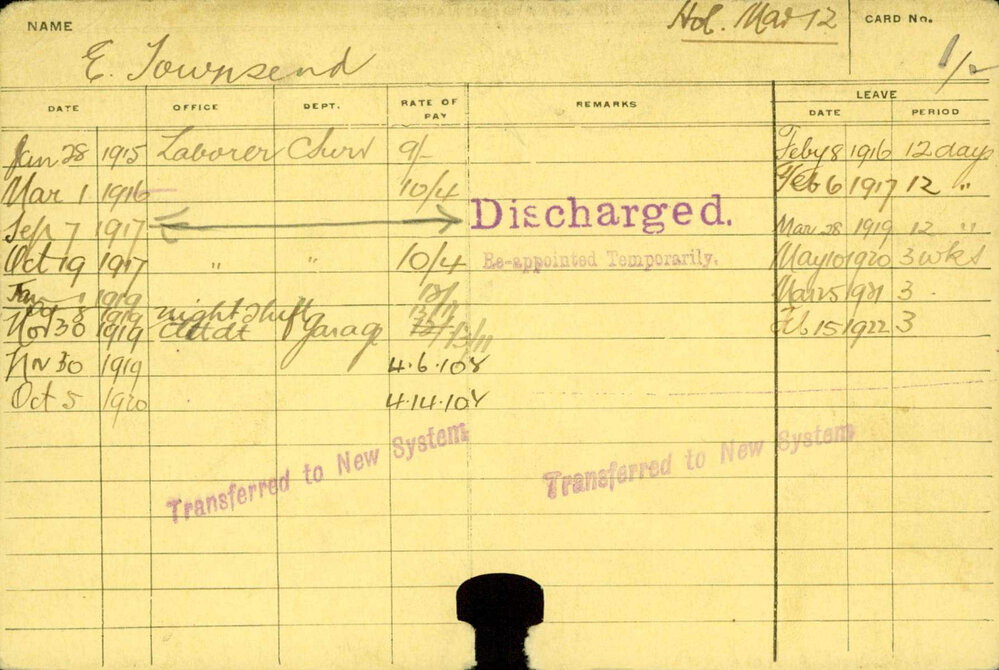 NAME
Hol. Mar 12
CARD No.
E. Townsend
1/2
DATE OFFICE DEPT. RATE OF PAY REMARKS LEAVE
DATE PERIOD
Jan 28 1915 Laborer 9/- Feby 8 1916 12 days
Mar 1 1916 10/4 Feb 6 1917 12 "
Sep 7 1917 Discharged. Mar 28 1919 12 "
Oct 19 1917 " " 10/4 Re-appointed Temporarily. May 10 1920 3 wks
1919 Mar 25 1921 3
8 1919 night shift 13/11 Feb 15 1922 3
Nov 30 1919 Attdt Garage 13/11
Nov 30 1919 4.6.10
Oct 5 1920 4.14.10
Transferred to New System
Transferred to New System